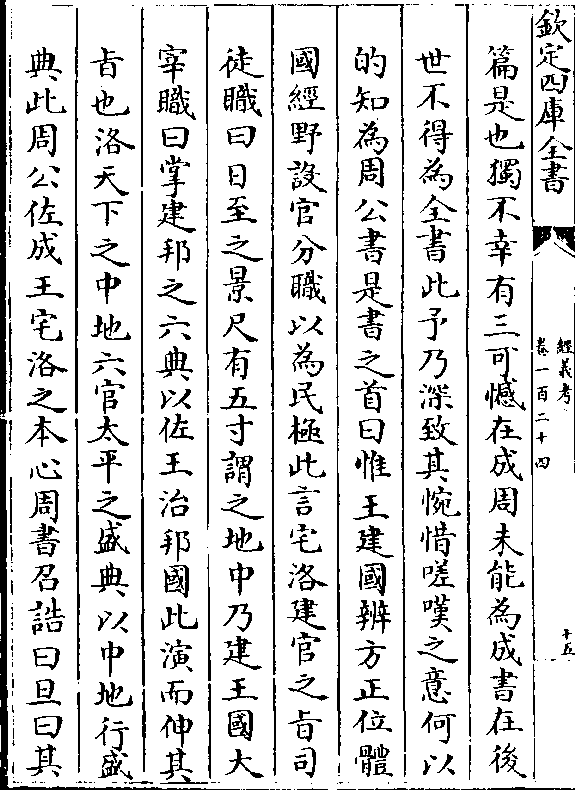 欽定四庫全書
經義考
卷一百二十四
十五
篇是也獨不幸有三可憾在成周未能為成書在後
世不得為全書此予乃深致其惋惜嗟嘆之意何以
的知為周公書是書之首曰惟王建國辨方正位體
國經野設官分職以為民極此言宅洛建官之㫖司
徒職曰日至之景尺有五寸謂之地中乃建王國大
宰職曰掌建邦之六典以佐王治邦國此演而伸其
㫖也洛天下之中地六官太平之盛典以中地行盛
典此周公佐成王宅洛之本心周書召誥曰旦曰其